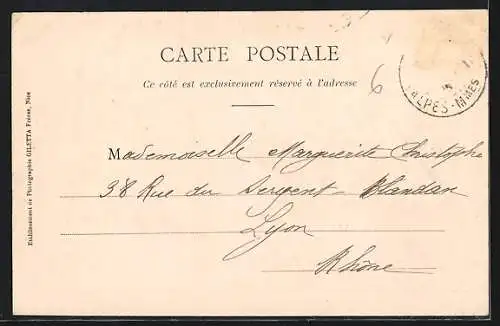 CARTE POSTALE
Ce côté est exclusivement réservé à l'adresse
6
ALPES-MMES
Mademoiselle Marguerite Christophe
38 Rue du Sergent-Blandan
Lyon
Rhône
Etablissement de Photographie GILETTA Frères, Nice